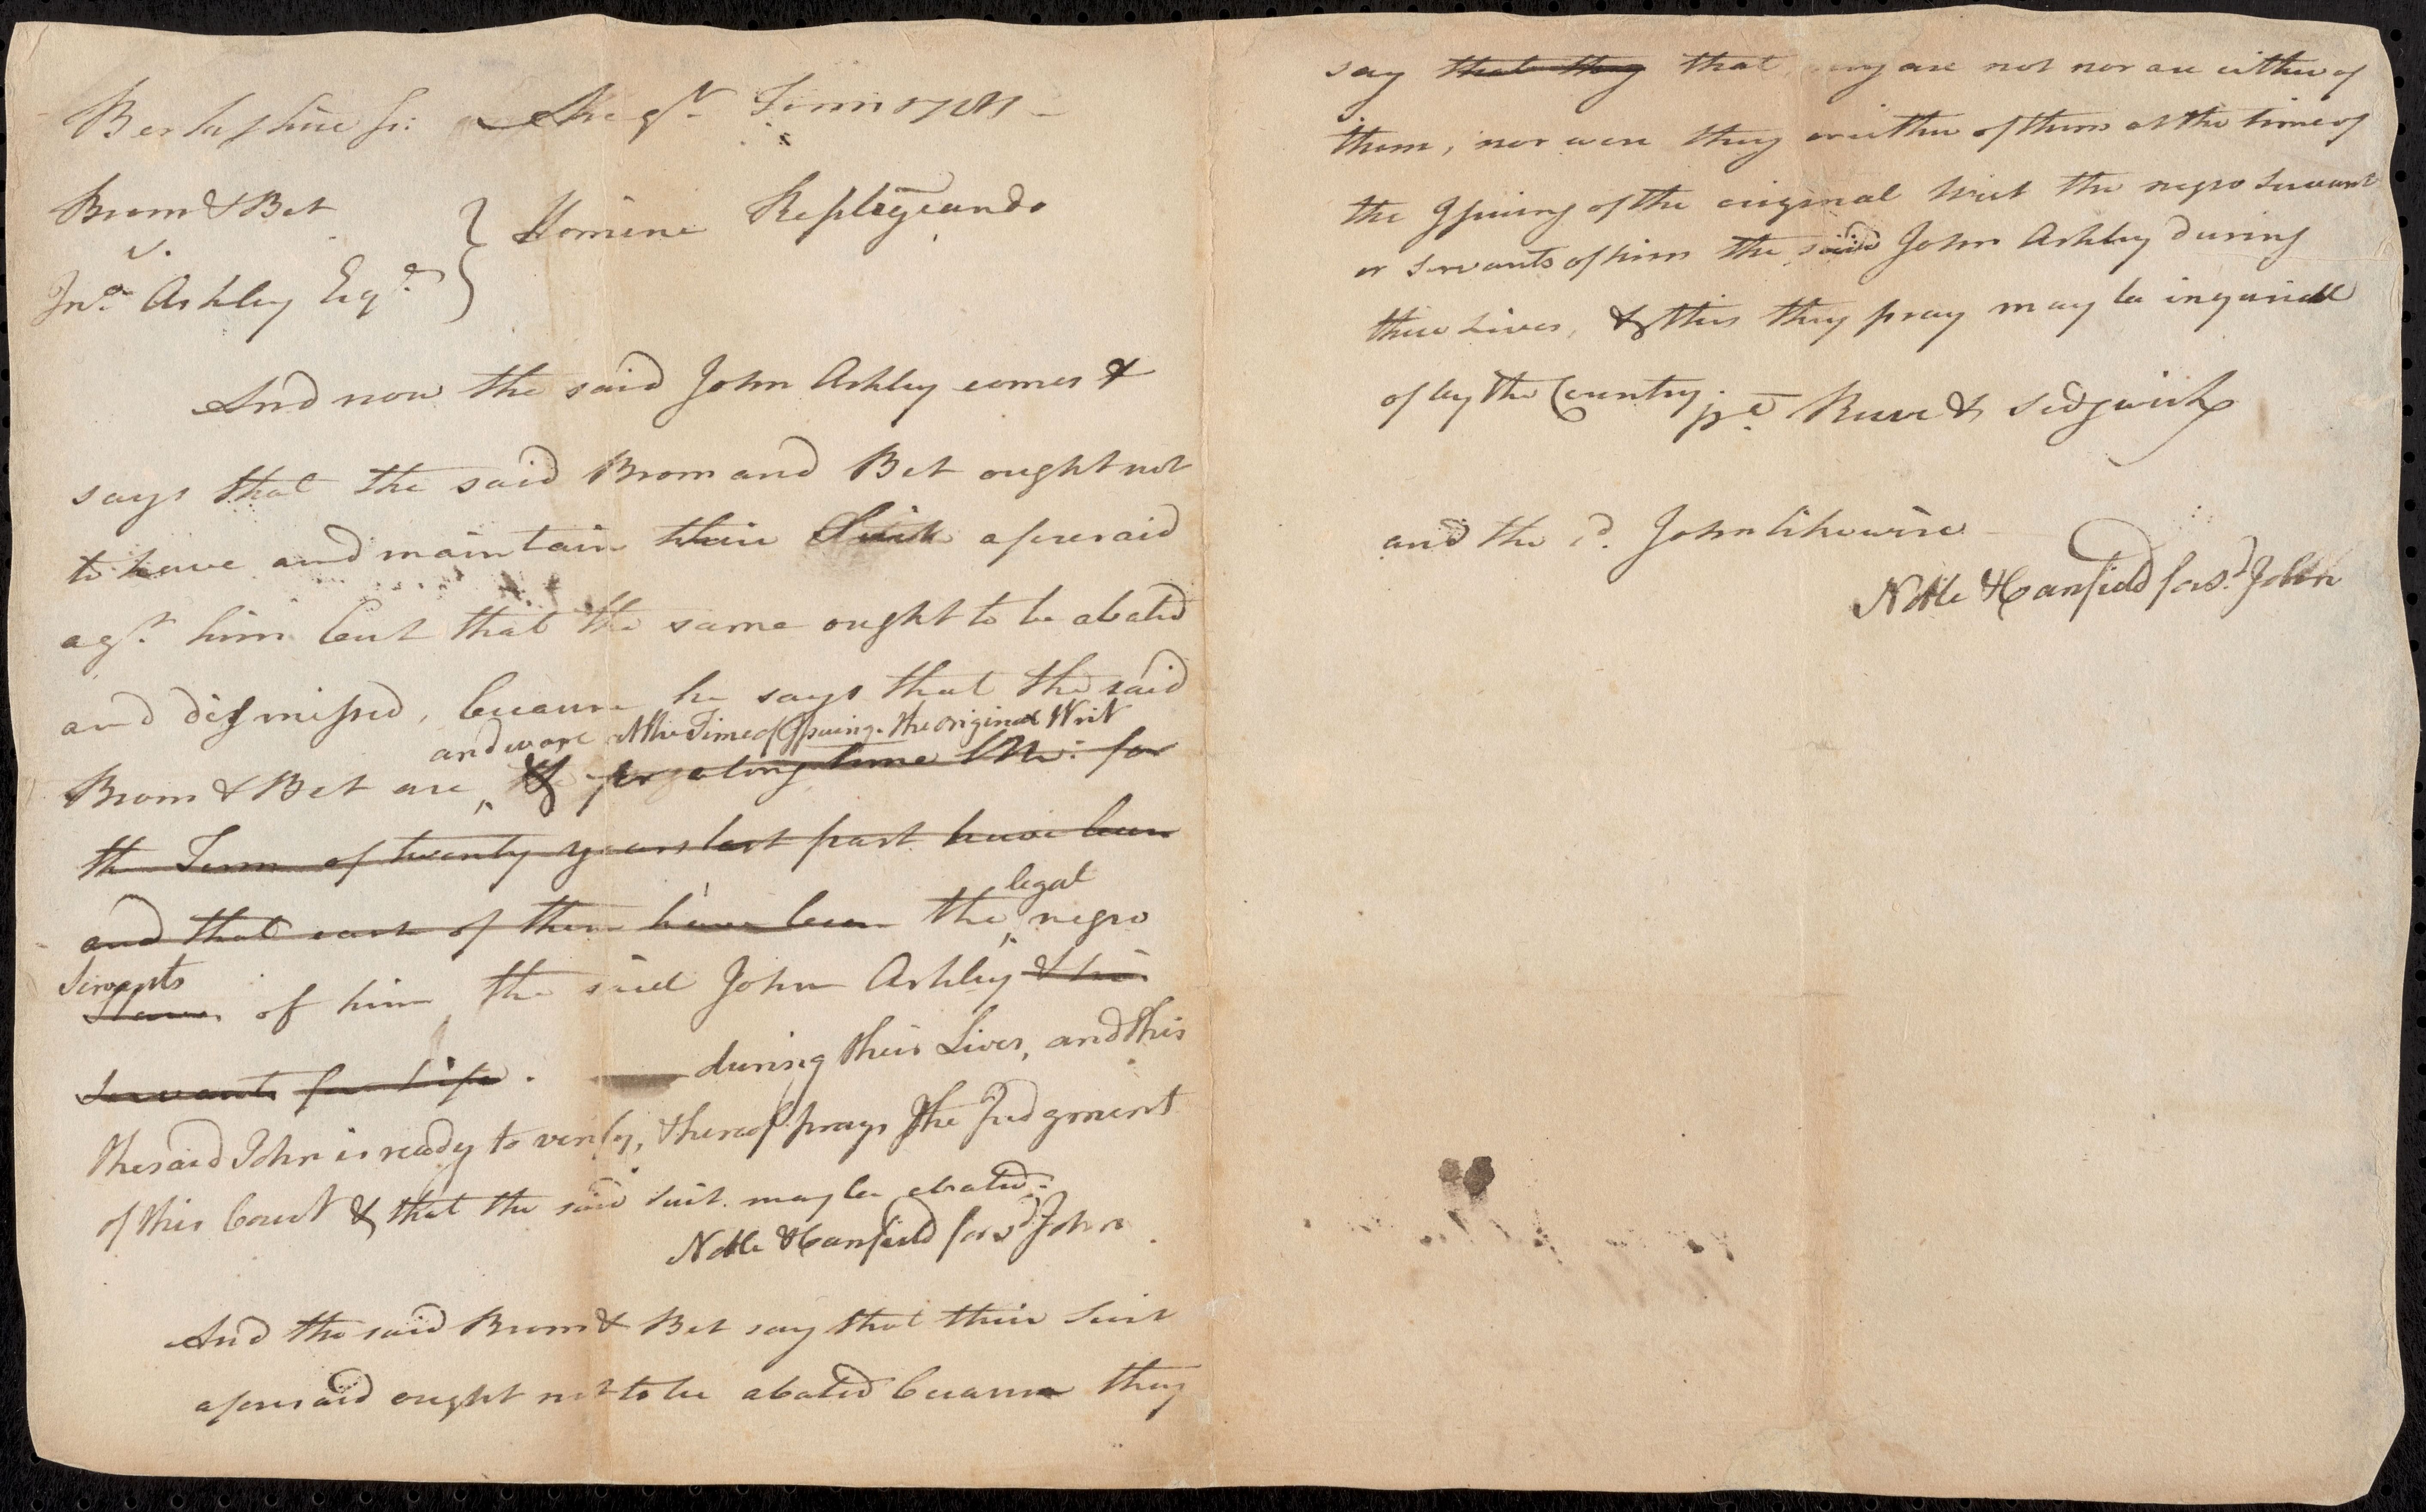 Berkshire ss: Augst. Term 1781
Brom & Bet
v.
Jno. Ashley Esqr.
} Homine Replegiando
And now the said John Ashley comes &
says that the said Brom and Bet ought not
to have and maintain their Suit aforesaid
agst. him but that the same ought to be abated
and dismissed, because he says that the said
and were at the Time of Issuing the original Writ
Brom & Bet are & for a long time viz: for
the Term of twenty years last past have been
and that each of them have been the legal negro
Servants
Slaves of him the said John Ashley & his
Servants for Life. during their Lives, and this
the said John is ready to verify, & hereof prays the Judgment
of this Court & that the said suit may be abated.
Noble & Canfield for sd. John
And the said Brom & Bet say that their Suit
aforesaid ought not to be abated because they
say that they that they are not nor are either of
them, nor were they or either of them at the time of
the Issuing of the original Writ the negro servant
or servants of him the said John Ashley during
their Lives, & this they pray may be inquired
of by the Country. pr. Reeve & Sedgwick
and the sd. John likewise
Noble & Canfield for sd. John